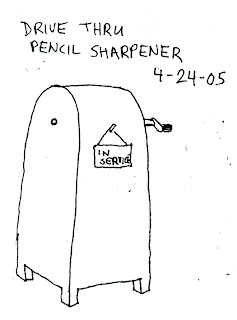 DRIVE THRU
PENCIL SHARPENER
4-24-05
IN
SERVICE